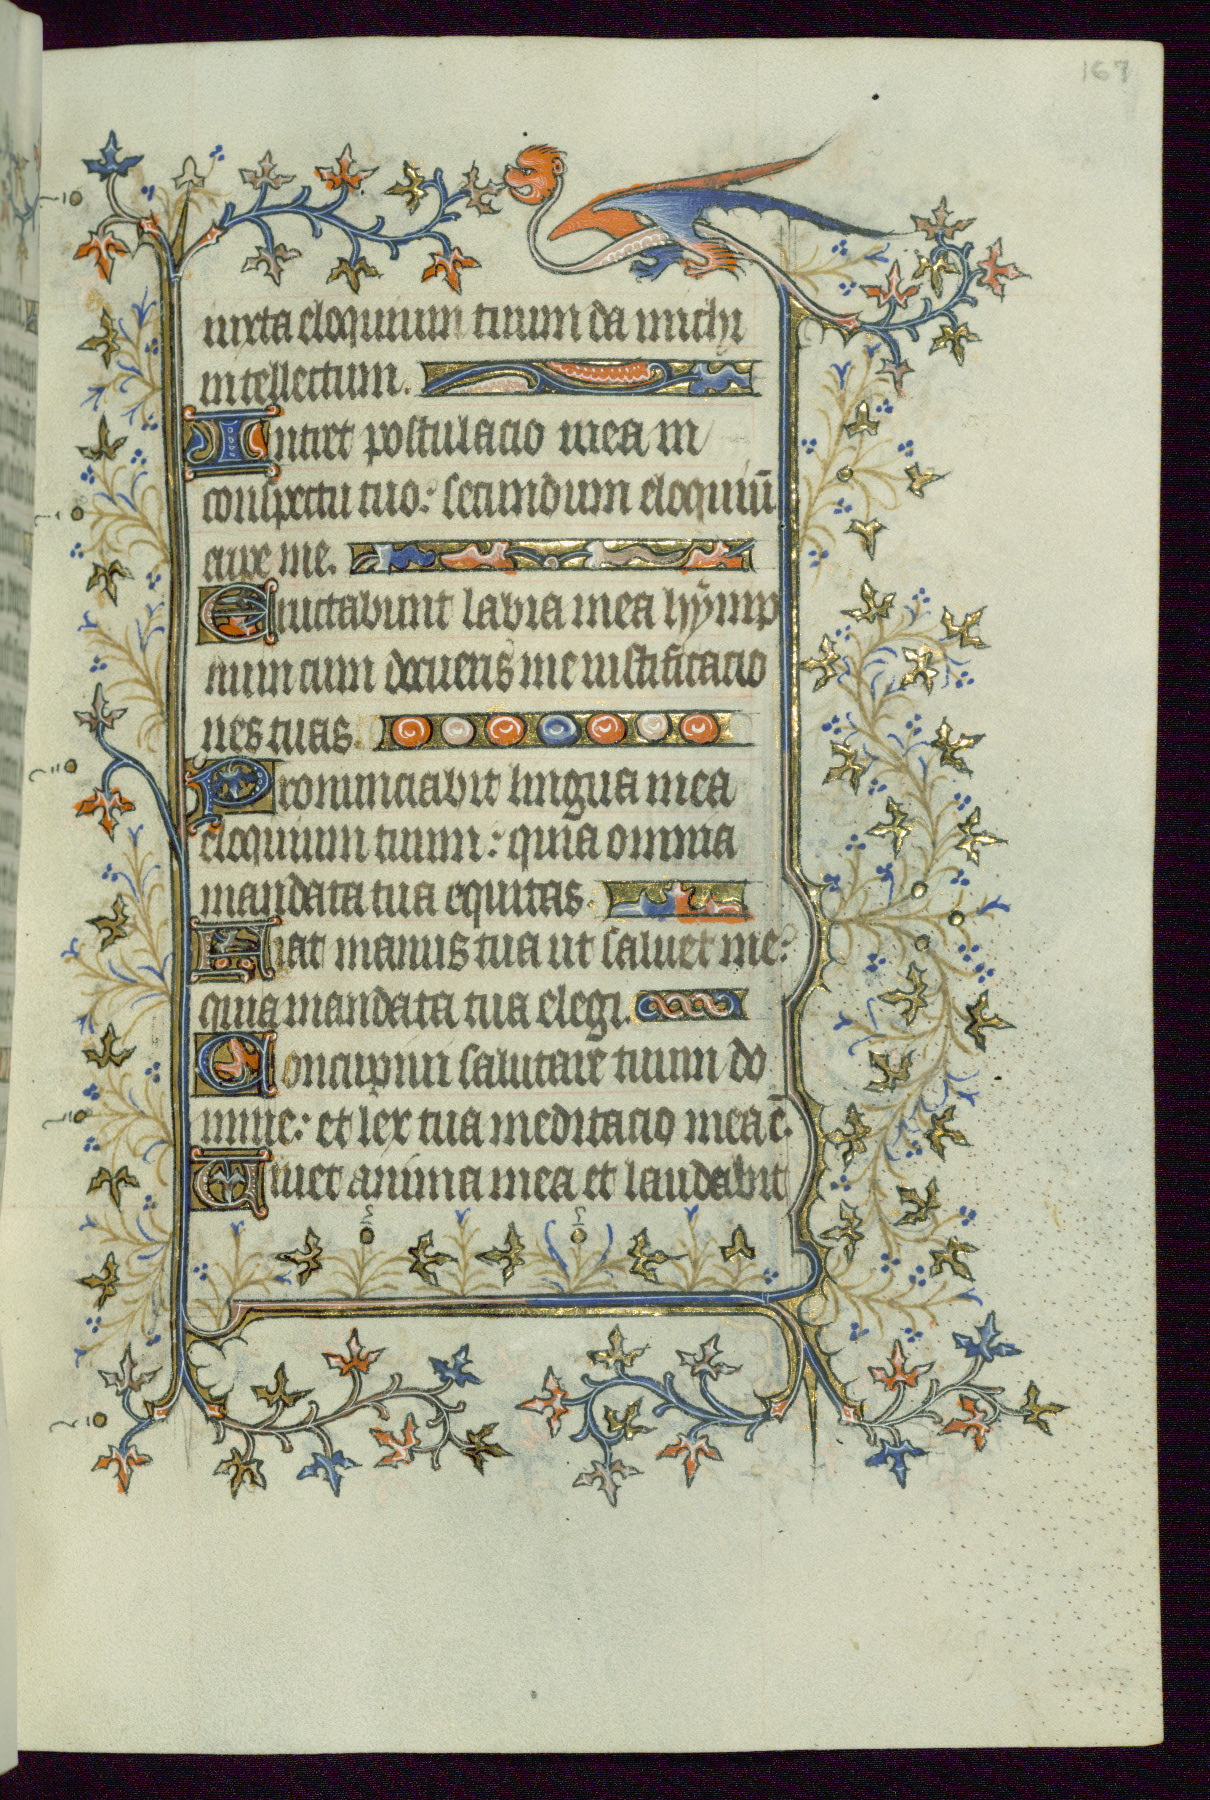 167
iuxta eloquium tuum da michi
intellectum.
Intret postulacio mea in
conspectu tuo: secundum eloquiū
eripe me.
Eructabunt labia mea hymp
num cum docueris me iustificacio
nes tuas.
Pronunciabit lingua mea
eloquium tuum: quia omnia
mandata tua equitas.
Fiat manus tua ut saluet me:
quia mandata tua elegi.
Concupiui salutare tuum do
mine: et lex tua meditacio mea ē.
Uiuet anima mea et laudabit